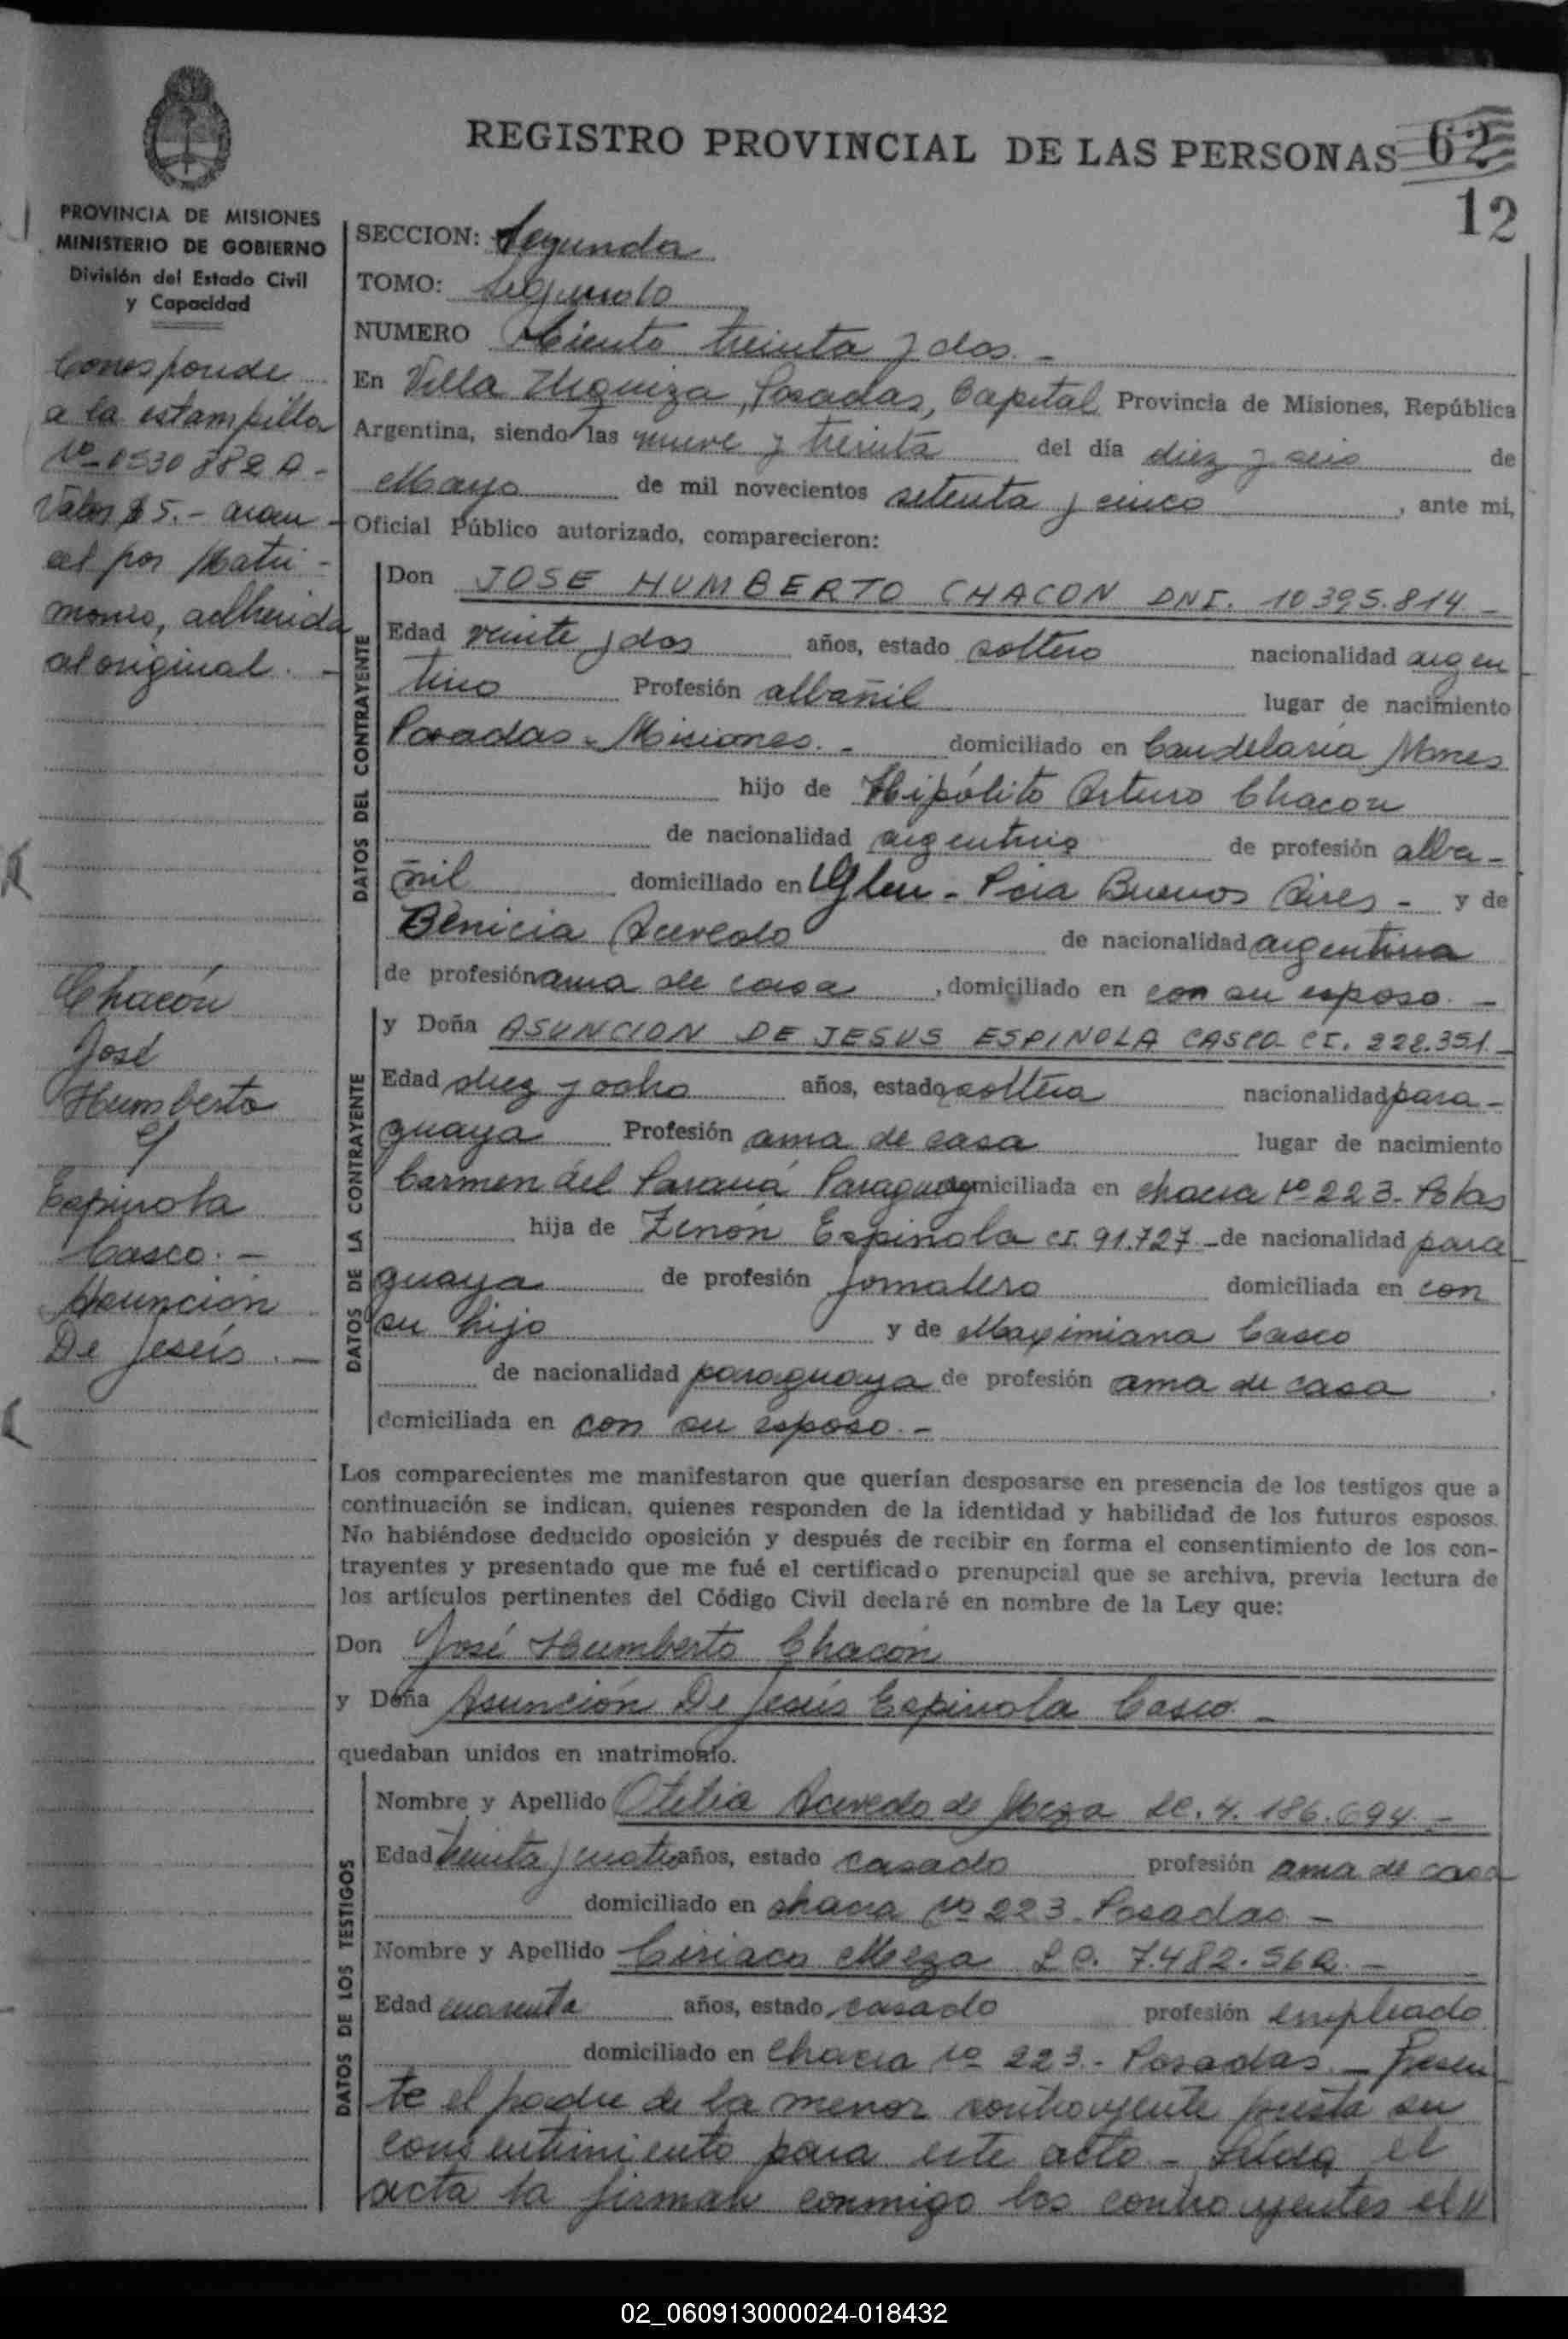 REGISTRO PROVINCIAL DE LAS PERSONAS 62
12
PROVINCIA DE MISIONES
MINISTERIO DE GOBIERNO
División del Estado Civil
y Capacidad
Corresponde
a la estampilla
Nº 0530882 A -
Valor $ 5.- aran -
cel por Matri -
monio, adherida
al original. -
Chacón
José
Humberto
c/
Espinola
Casco. -
Asunción
De Jesús. -
SECCION: Segunda
TOMO: Segundo
NUMERO Ciento treinta y dos. -
En Villa Urquiza, Posadas, Capital Provincia de Misiones, República
Argentina, siendo las nueve y treinta del día diez y seis de
Mayo de mil novecientos setenta y cinco, ante mi,
Oficial Público autorizado, comparecieron:
DATOS DEL CONTRAYENTE
Don JOSE HUMBERTO CHACON DNI. 10395.814 -
Edad veinte y dos años, estado soltero nacionalidad argen
tino Profesión albañil lugar de nacimiento
Posadas - Misiones. - domiciliado en Candelaria Mnes
hijo de Hipólito Arturo Chacon
de nacionalidad argentino de profesión alba-
ñil domiciliado en Glew - Pcia Buenos Aires - y de
Benicia Acevedo de nacionalidad argentina
de profesión ama de casa, domiciliado en con su esposo. -
DATOS DE LA CONTRAYENTE
y Doña ASUNCION DE JESUS ESPINOLA CASCO - CI. 222.351 -
Edad diez y ocho años, estado soltera nacionalidad para -
guaya Profesión ama de casa lugar de nacimiento
Carmen del Paraná Paraguay domiciliada en chacra Nº 223. Pdas
hija de Zenón Espinola CI. 91.727 - de nacionalidad para
guaya de profesión jornalero domiciliada en con
su hijo y de Maximiana Casco
de nacionalidad paraguaya de profesión ama de casa
domiciliada en con su esposo. -
Los comparecientes me manifestaron que querían desposarse en presencia de los testigos que a
continuación se indican, quienes responden de la identidad y habilidad de los futuros esposos.
No habiéndose deducido oposición y después de recibir en forma el consentimiento de los con-
trayentes y presentado que me fué el certificado prenupcial que se archiva, previa lectura de
los artículos pertinentes del Código Civil declaré en nombre de la Ley que:
Don José Humberto Chacón
y Doña Asunción De Jesús Espinola Casco. -
quedaban unidos en matrimonio.
DATOS DE LOS TESTIGOS
Nombre y Apellido Otilia Acevedo de Meza LC. 4.186.694. -
Edad treinta y cuatro años, estado casado profesión ama de casa
domiciliado en chacra Nº 223. Posadas -
Nombre y Apellido Ciriaco Meza L.E. 7.482.562. -
Edad cuarenta años, estado casado profesión empleado
domiciliado en Chacra Nº 223. - Posadas. - Presen
te el padre de la menor contrayente presta su
consentimiento para este acto - Leída el
acta la firman conmigo los contrayentes el //
02_060913000024-018432